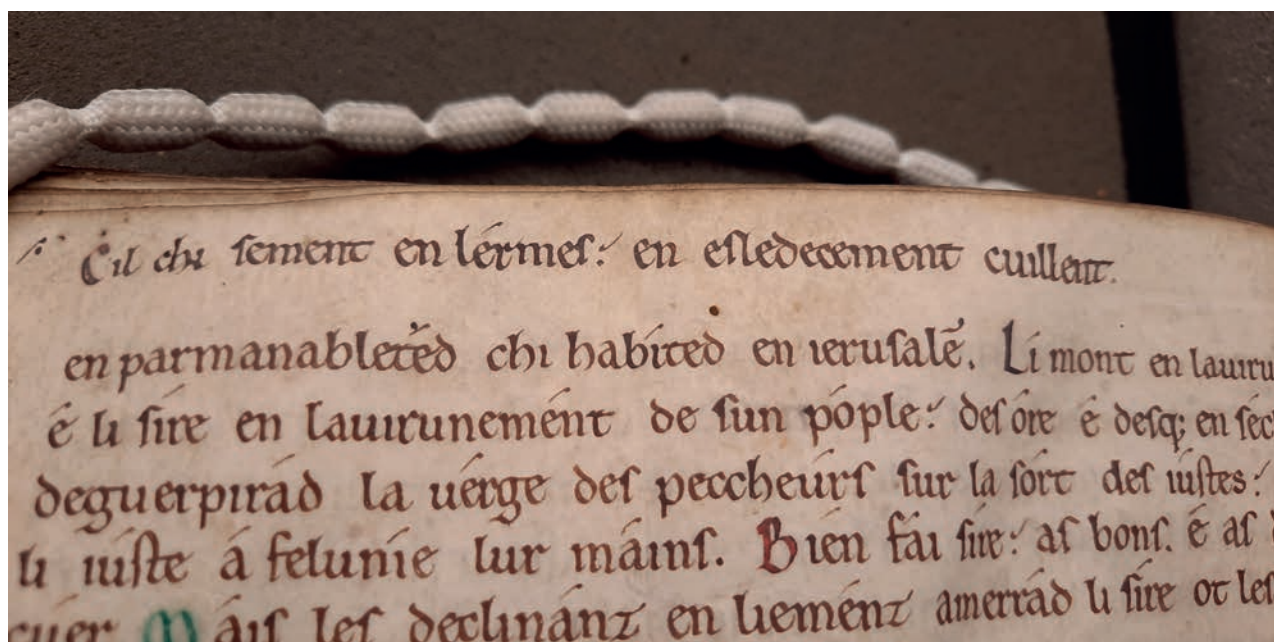 Cil chi sement en lérmes: en esledecement cuillent.
en parmanableted chi habited en ierusalē. Li mont en lauiru
é li sire en lauirunemént de sun póple: des óre é desq; en séc
deguerpirád la uérge des peccheúrs sur la sort des iustes:
li iuste á felunie lur máins. Bien fái sire: as bons. é as
cuer Máis les declinánz en liemént amerrád li sire ot les